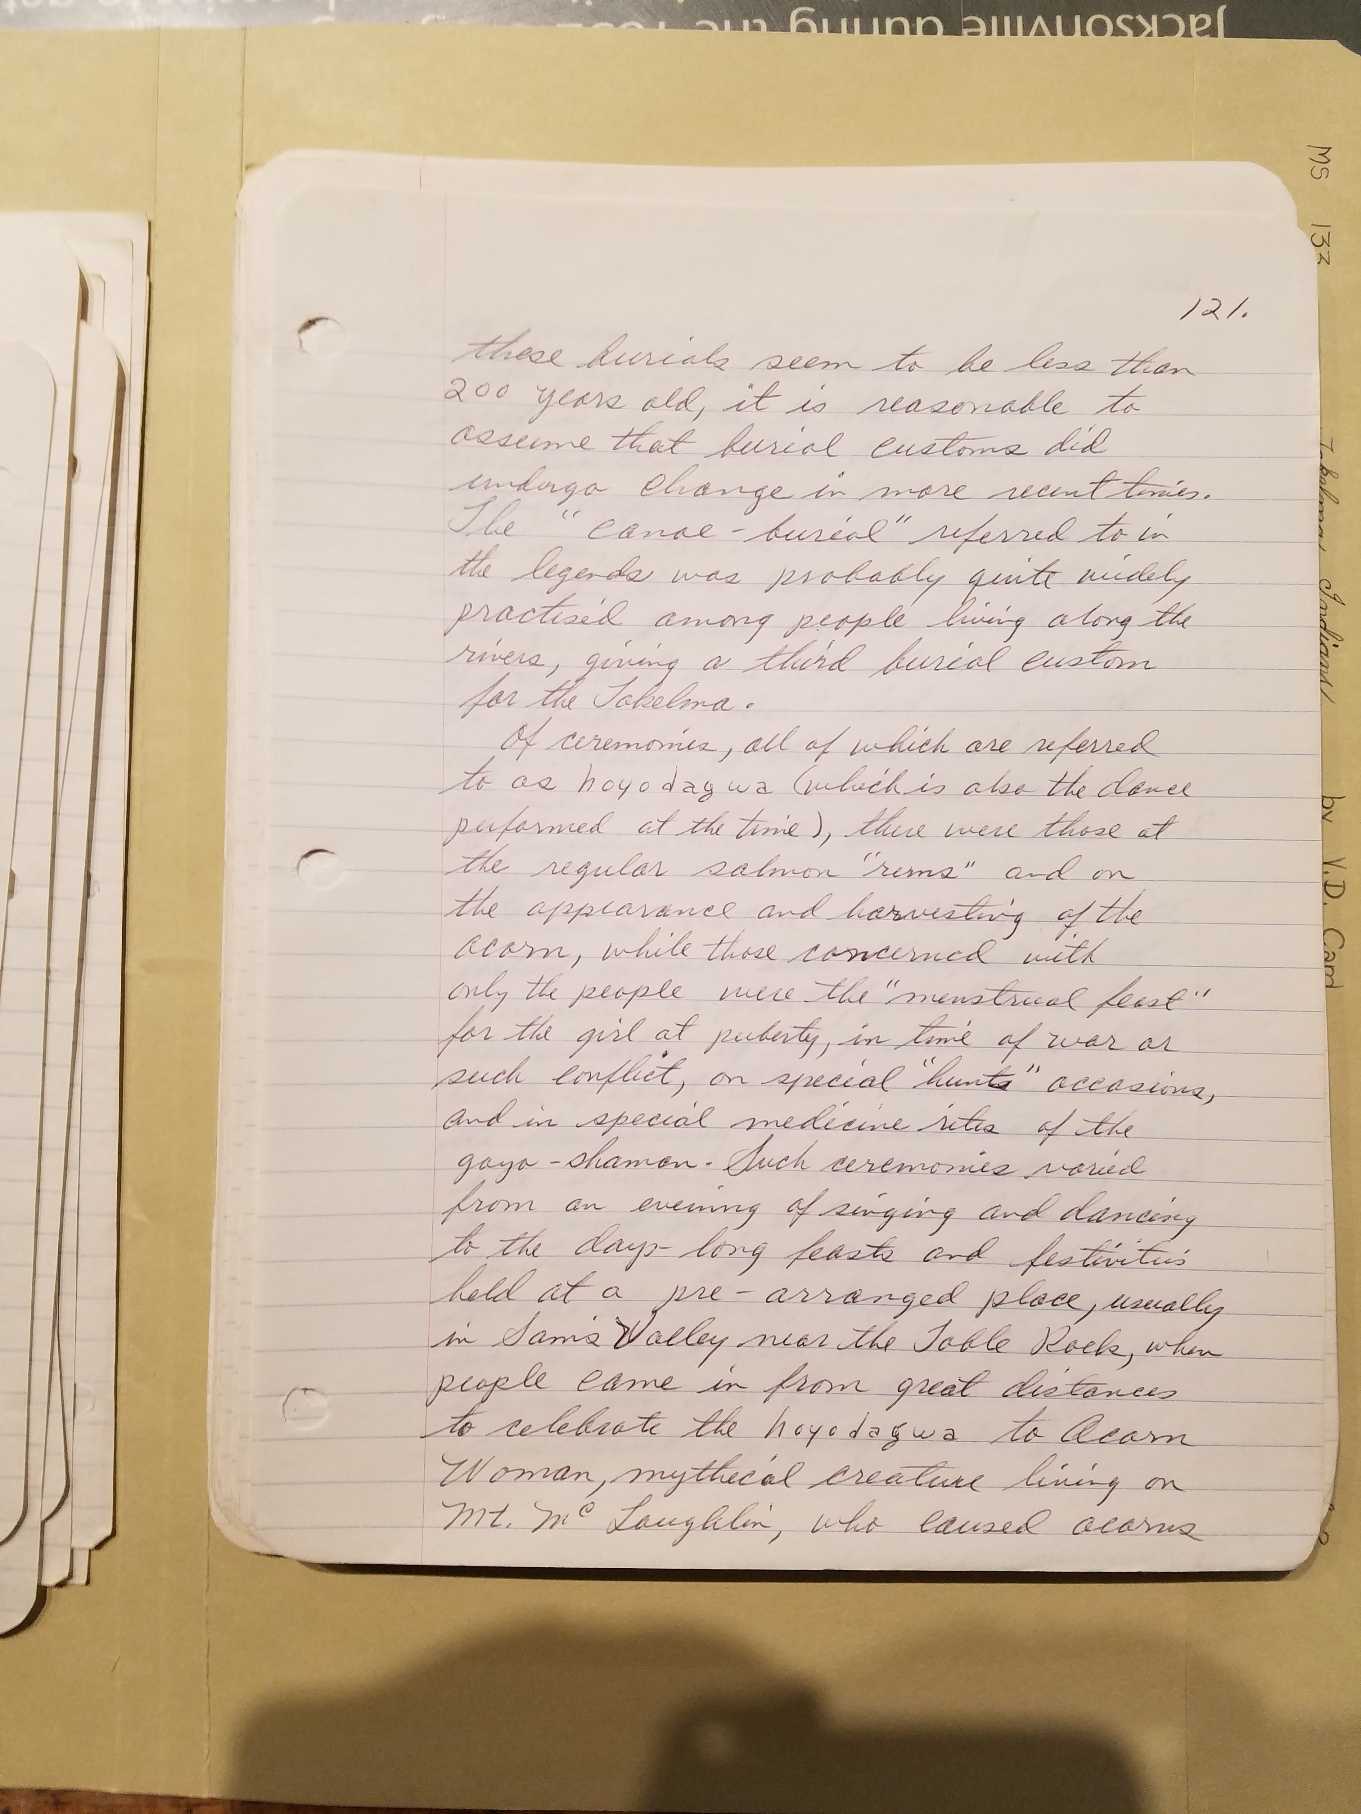 Jacksonville during the
MS 133
Takelma Indians
by V.D. Card
121.
these burials seem to be less than
200 years old, it is reasonable to
assume that burial customs did
undergo change in more recent times.
The "canoe-burial" referred to in
the legends was probably quite widely
practised among people living along the
rivers, giving a third burial custom
for the Takelma.
Of ceremonies, all of which are referred
to as hoyodagwa (which is also the dance
performed at the time), there were those at
the regular salmon "runs" and on
the appearance and harvesting of the
acorn, while those concerned with
only the people were the "menstrual feast"
for the girl at puberty, in time of war or
such conflict, on special "hunts" occasions,
and in special medicine rites of the
goyo-shaman. Such ceremonies varied
from an evening of singing and dancing
to the days-long feasts and festivities
held at a pre-arranged place, usually
in Sam's Valley near the Table Rock, when
people came in from great distances
to celebrate the hoyodagwa to Acorn
Woman, mythical creature living on
Mt. McLoughlin, who caused acorns